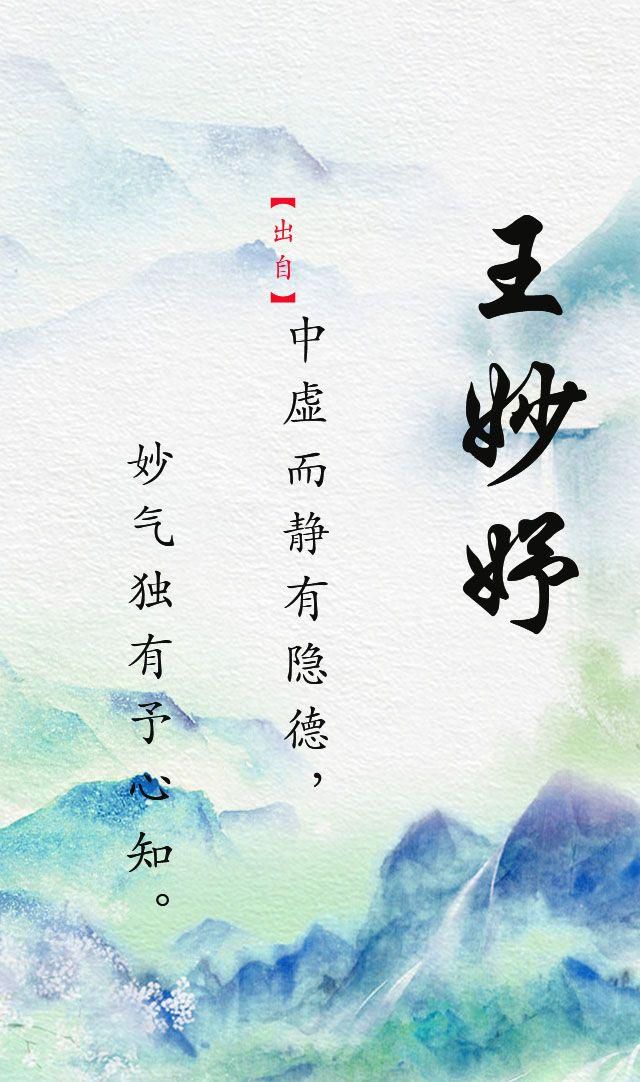 王妙妤
【出自】
中虚而静有隐德，
妙气独有予心知。